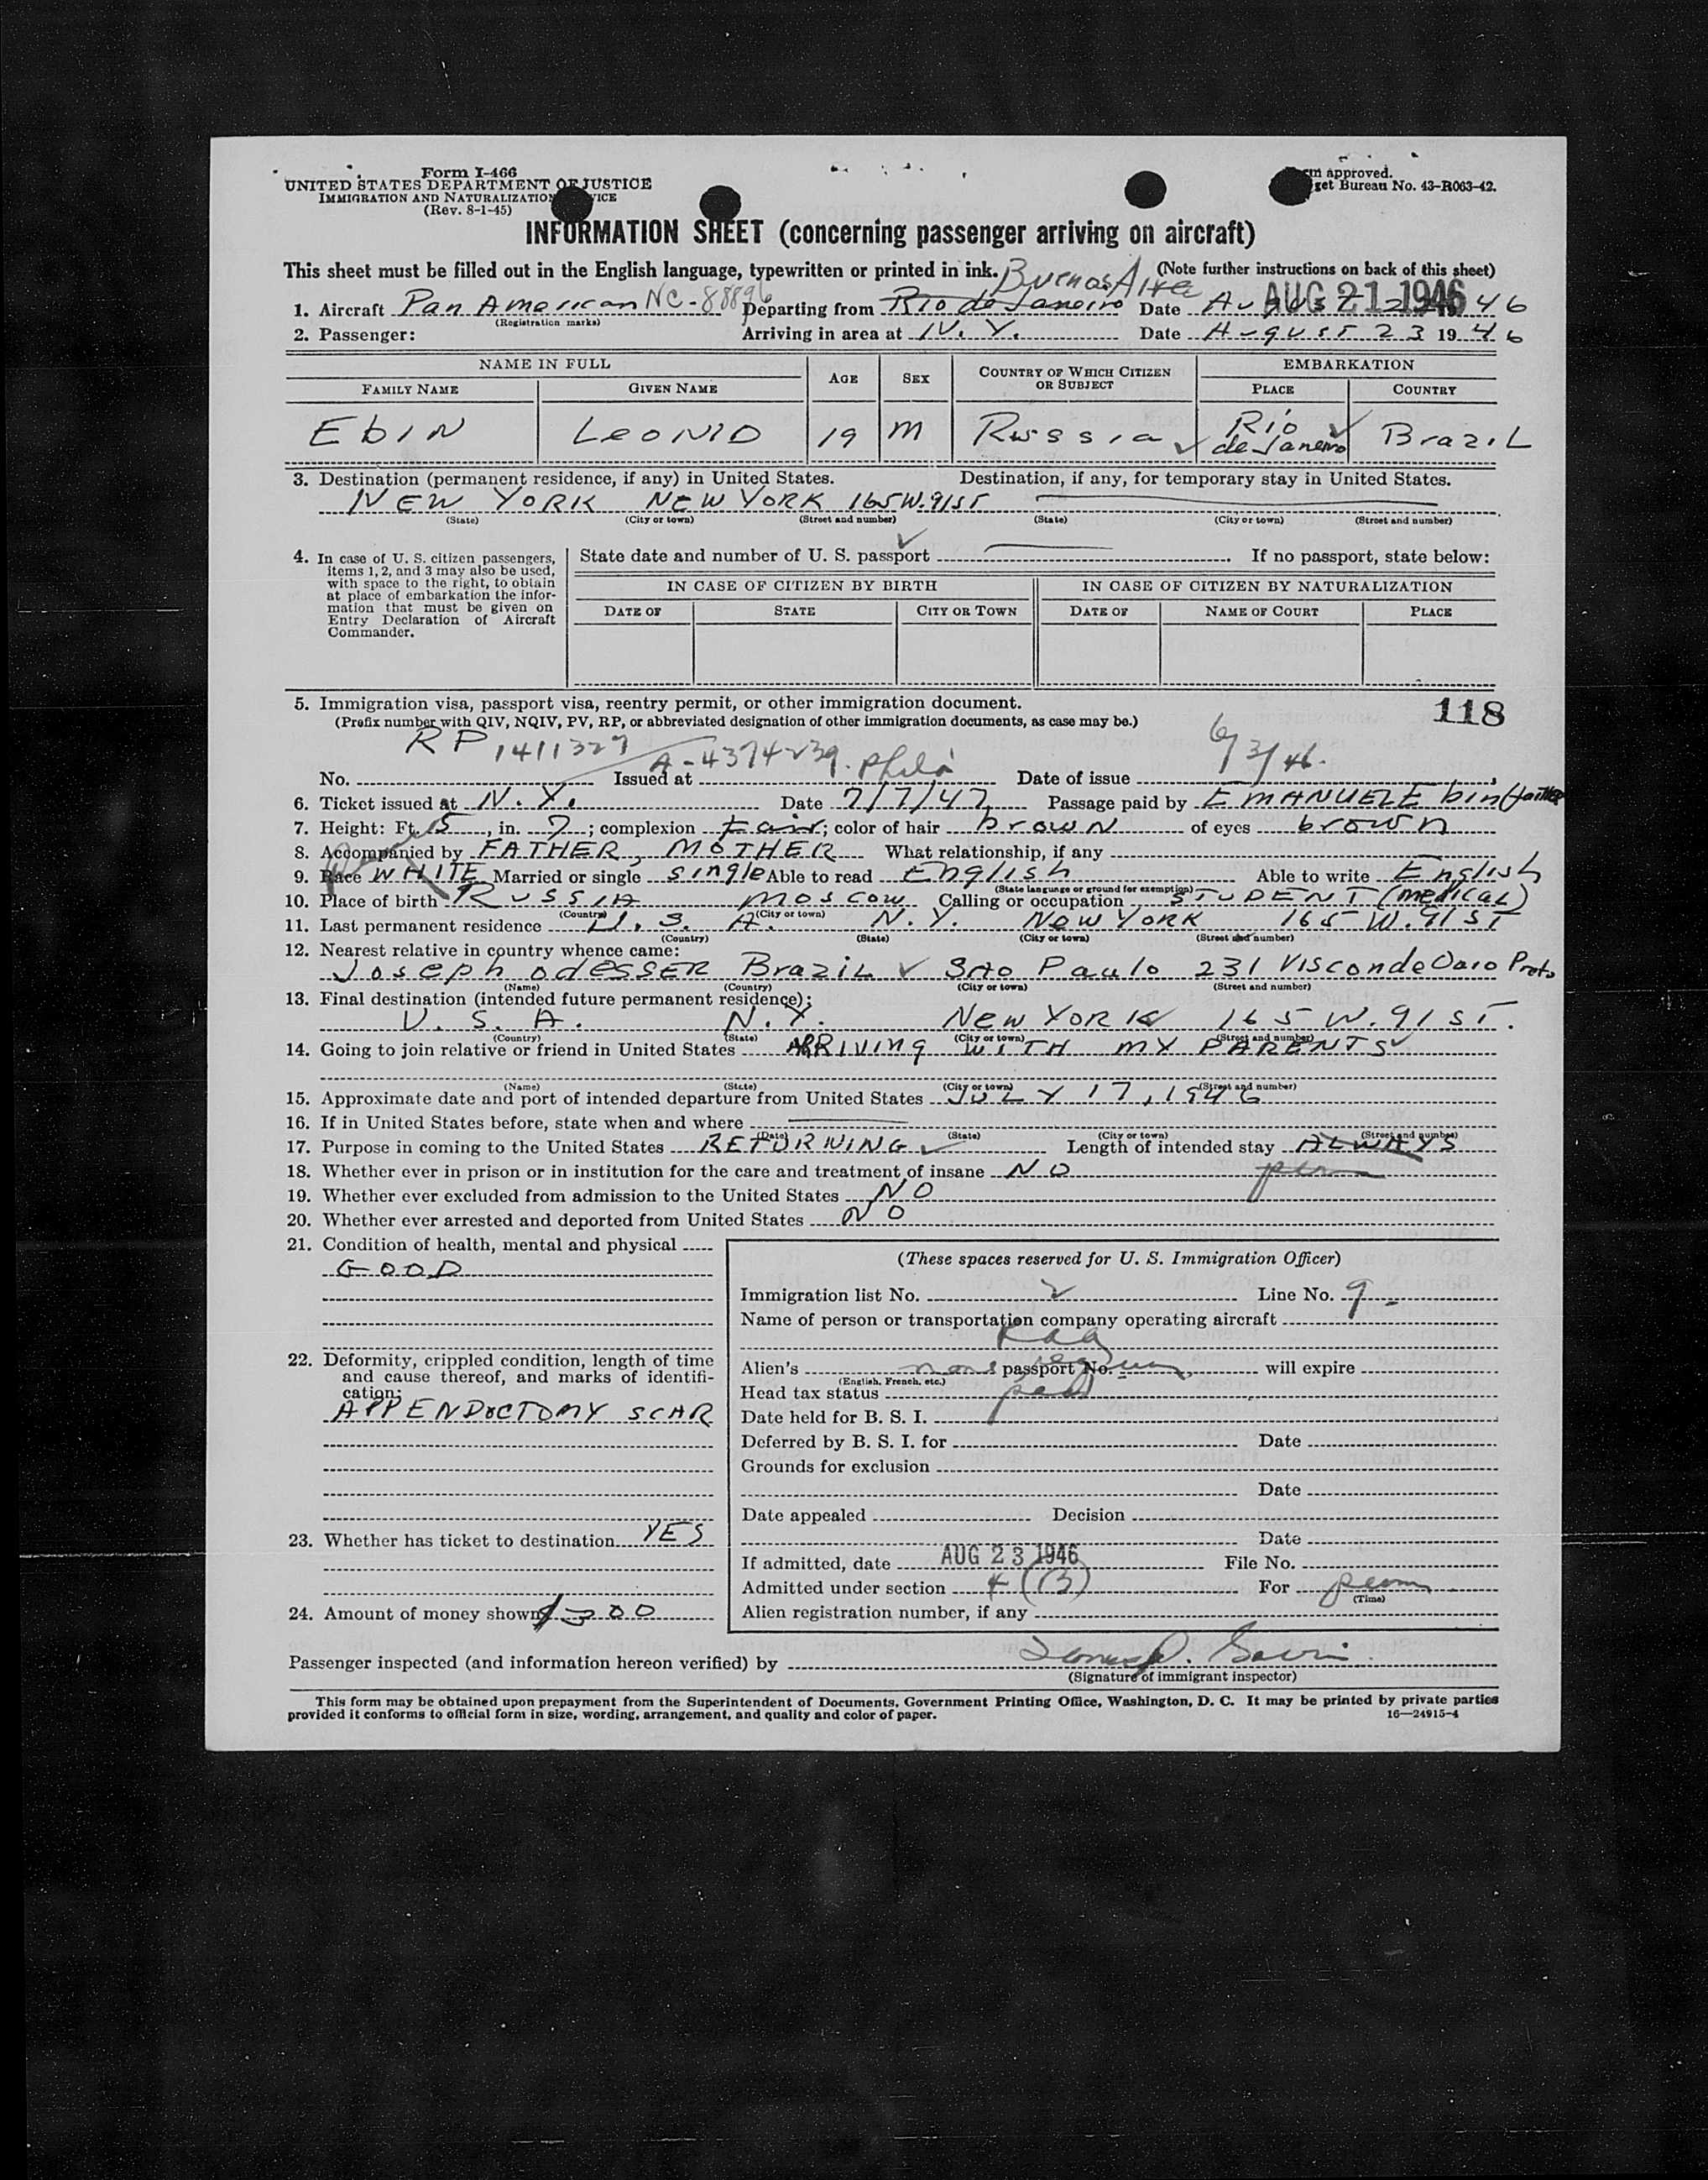 Form I-466
UNITED STATES DEPARTMENT OF JUSTICE
IMMIGRATION AND NATURALIZATION SERVICE
(Rev. 8-1-45)
approved.
get Bureau No. 43-R063-42.
INFORMATION SHEET (concerning passenger arriving on aircraft)
This sheet must be filled out in the English language, typewritten or printed in ink. (Note further instructions on back of this sheet)
Buenos Aires
1. Aircraft Pan American NC-88896 Departing from Rio de Janeiro Date August 46 AUG 21 1946
(Registration marks)
2. Passenger: Arriving in area at N. Y. Date August 23 19 46
NAME IN FULL AGE SEX COUNTRY OF WHICH CITIZEN OR SUBJECT EMBARKATION
FAMILY NAME GIVEN NAME PLACE COUNTRY
EbIN LEONID 19 M Russia Rio de Janeiro BraziL
3. Destination (permanent residence, if any) in United States. Destination, if any, for temporary stay in United States.
NEW YORK NEW YORK 165 W. 91 ST
(State) (City or town) (Street and number) (State) (City or town) (Street and number)
4. In case of U. S. citizen passengers, items 1, 2, and 3 may also be used, with space to the right, to obtain at place of embarkation the information that must be given on Entry Declaration of Aircraft Commander.
State date and number of U. S. passport If no passport, state below:
IN CASE OF CITIZEN BY BIRTH IN CASE OF CITIZEN BY NATURALIZATION
DATE OF STATE CITY OR TOWN DATE OF NAME OF COURT PLACE
5. Immigration visa, passport visa, reentry permit, or other immigration document. 118
(Prefix number with QIV, NQIV, PV, RP, or abbreviated designation of other immigration documents, as case may be.)
RP 1411327 A-4374239 Phila 6/3/46.
No. Issued at Date of issue
6. Ticket issued at N. Y. Date 7/7/47 Passage paid by EMANUEL Ebin father
7. Height: Ft. 5, in. 7; complexion Fair; color of hair brown of eyes brown
8. Accompanied by FATHER, MOTHER What relationship, if any
9. Race WHITE Married or single single Able to read English Able to write English
(State language or ground for exemption)
10. Place of birth RUSSIA MOSCOW Calling or occupation STUDENT (MEDICAL)
(Country) (City or town)
11. Last permanent residence U. S. A. N. Y. New YORK 165 W. 91 ST
(Country) (State) (City or town) (Street and number)
12. Nearest relative in country whence came:
Joseph ODESSER BraziL SAO Paulo 231 Visconde Ouro Preto
(Name) (Country) (City or town) (Street and number)
13. Final destination (intended future permanent residence):
U. S. A. N. Y. New YORK 165 W. 91 ST.
(Country) (State) (City or town) (Street and number)
14. Going to join relative or friend in United States ARRIVING WITH MY PARENTS
(Name) (State) (City or town) (Street and number)
15. Approximate date and port of intended departure from United States JULY 17, 1946
16. If in United States before, state when and where
(Date) (State) (City or town) (Street and number)
17. Purpose in coming to the United States RETURNING Length of intended stay ALWAYS
perm
18. Whether ever in prison or in institution for the care and treatment of insane NO
19. Whether ever excluded from admission to the United States NO
20. Whether ever arrested and deported from United States NO
21. Condition of health, mental and physical
GOOD
22. Deformity, crippled condition, length of time and cause thereof, and marks of identification:
APPENDOCTOMY SCAR
23. Whether has ticket to destination YES
24. Amount of money shown $ 300
(These spaces reserved for U. S. Immigration Officer)
Immigration list No. 2 Line No. 9
Name of person or transportation company operating aircraft
Alien's passport No. will expire
(English, French, etc.)
Head tax status
Date held for B. S. I.
Deferred by B. S. I. for Date
Grounds for exclusion
Date
Date appealed Decision
Date
If admitted, date AUG 23 1946 File No.
Admitted under section 4 (B) For perm
(Time)
Alien registration number, if any
Passenger inspected (and information hereon verified) by
(Signature of immigrant inspector)
This form may be obtained upon prepayment from the Superintendent of Documents, Government Printing Office, Washington, D. C. It may be printed by private parties
provided it conforms to official form in size, wording, arrangement, and quality and color of paper. 16—24915-4